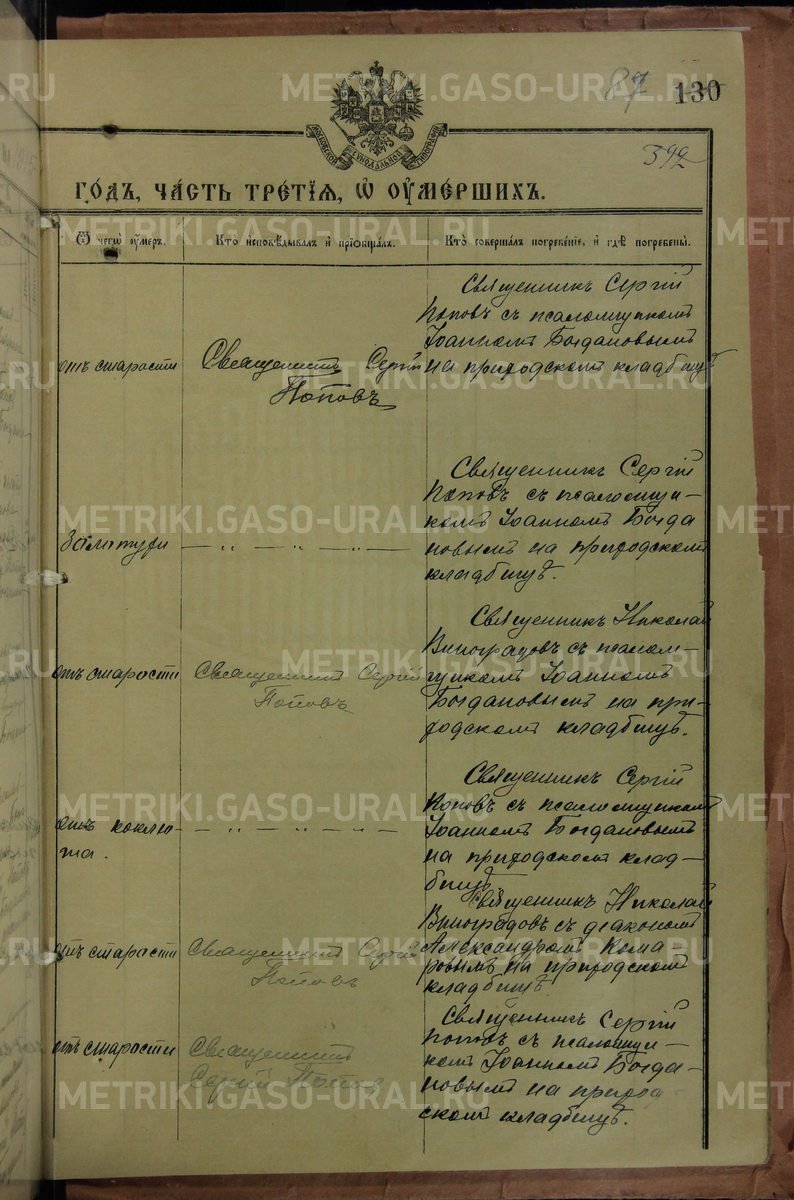 87 130
392
МОСКОВСКОЙ СѴНОДАЛЬНОЙ ТИПОГРАФІИ
ГОДЪ, ЧАСТЬ ТРЕТІЯ, Ѡ ОУМЕРШИХЪ.
Ѿ чегѡ оумеръ.
Кто исповѣдывалъ и пріобщалъ.
Кто совершалъ погребеніе, и гдѣ погребены.
отъ старости
Священникъ Сергій
Поповъ
Священникъ Сергій
Поповъ съ псаломщикомъ
Іоанномъ Богдановымъ
на приходскомъ кладбищѣ
— " — " —
Священникъ Сергій
Поповъ съ псаломщи-
комъ Іоанномъ Богда
новымъ на приходскомъ
кладбищѣ.
отъ старости
Священникъ Сергій
Поповъ
Священникъ Николай
Виноградовъ съ псалом-
щикомъ Іоанномъ
Богдановымъ на при-
ходскомъ кладбищѣ.
отъ коклю-
ша.
— " — " — " —
Священникъ Сергій
Поповъ съ псаломщикомъ
Іоанномъ Богдановымъ
на приходскомъ клад-
бищѣ
отъ старости
Священникъ Сергій
Поповъ
Священникъ Николай
Виноградовъ съ діакономъ
Александромъ Кома
ровымъ на приходскомъ
кладбищѣ
отъ старости
Священникъ
Сергій Поповъ
Священникъ Сергій
Поповъ съ псаломщи-
комъ Іоанномъ Богда-
новымъ на приход
скомъ кладбищѣ.
METRIKI.GASO-URAL.RU